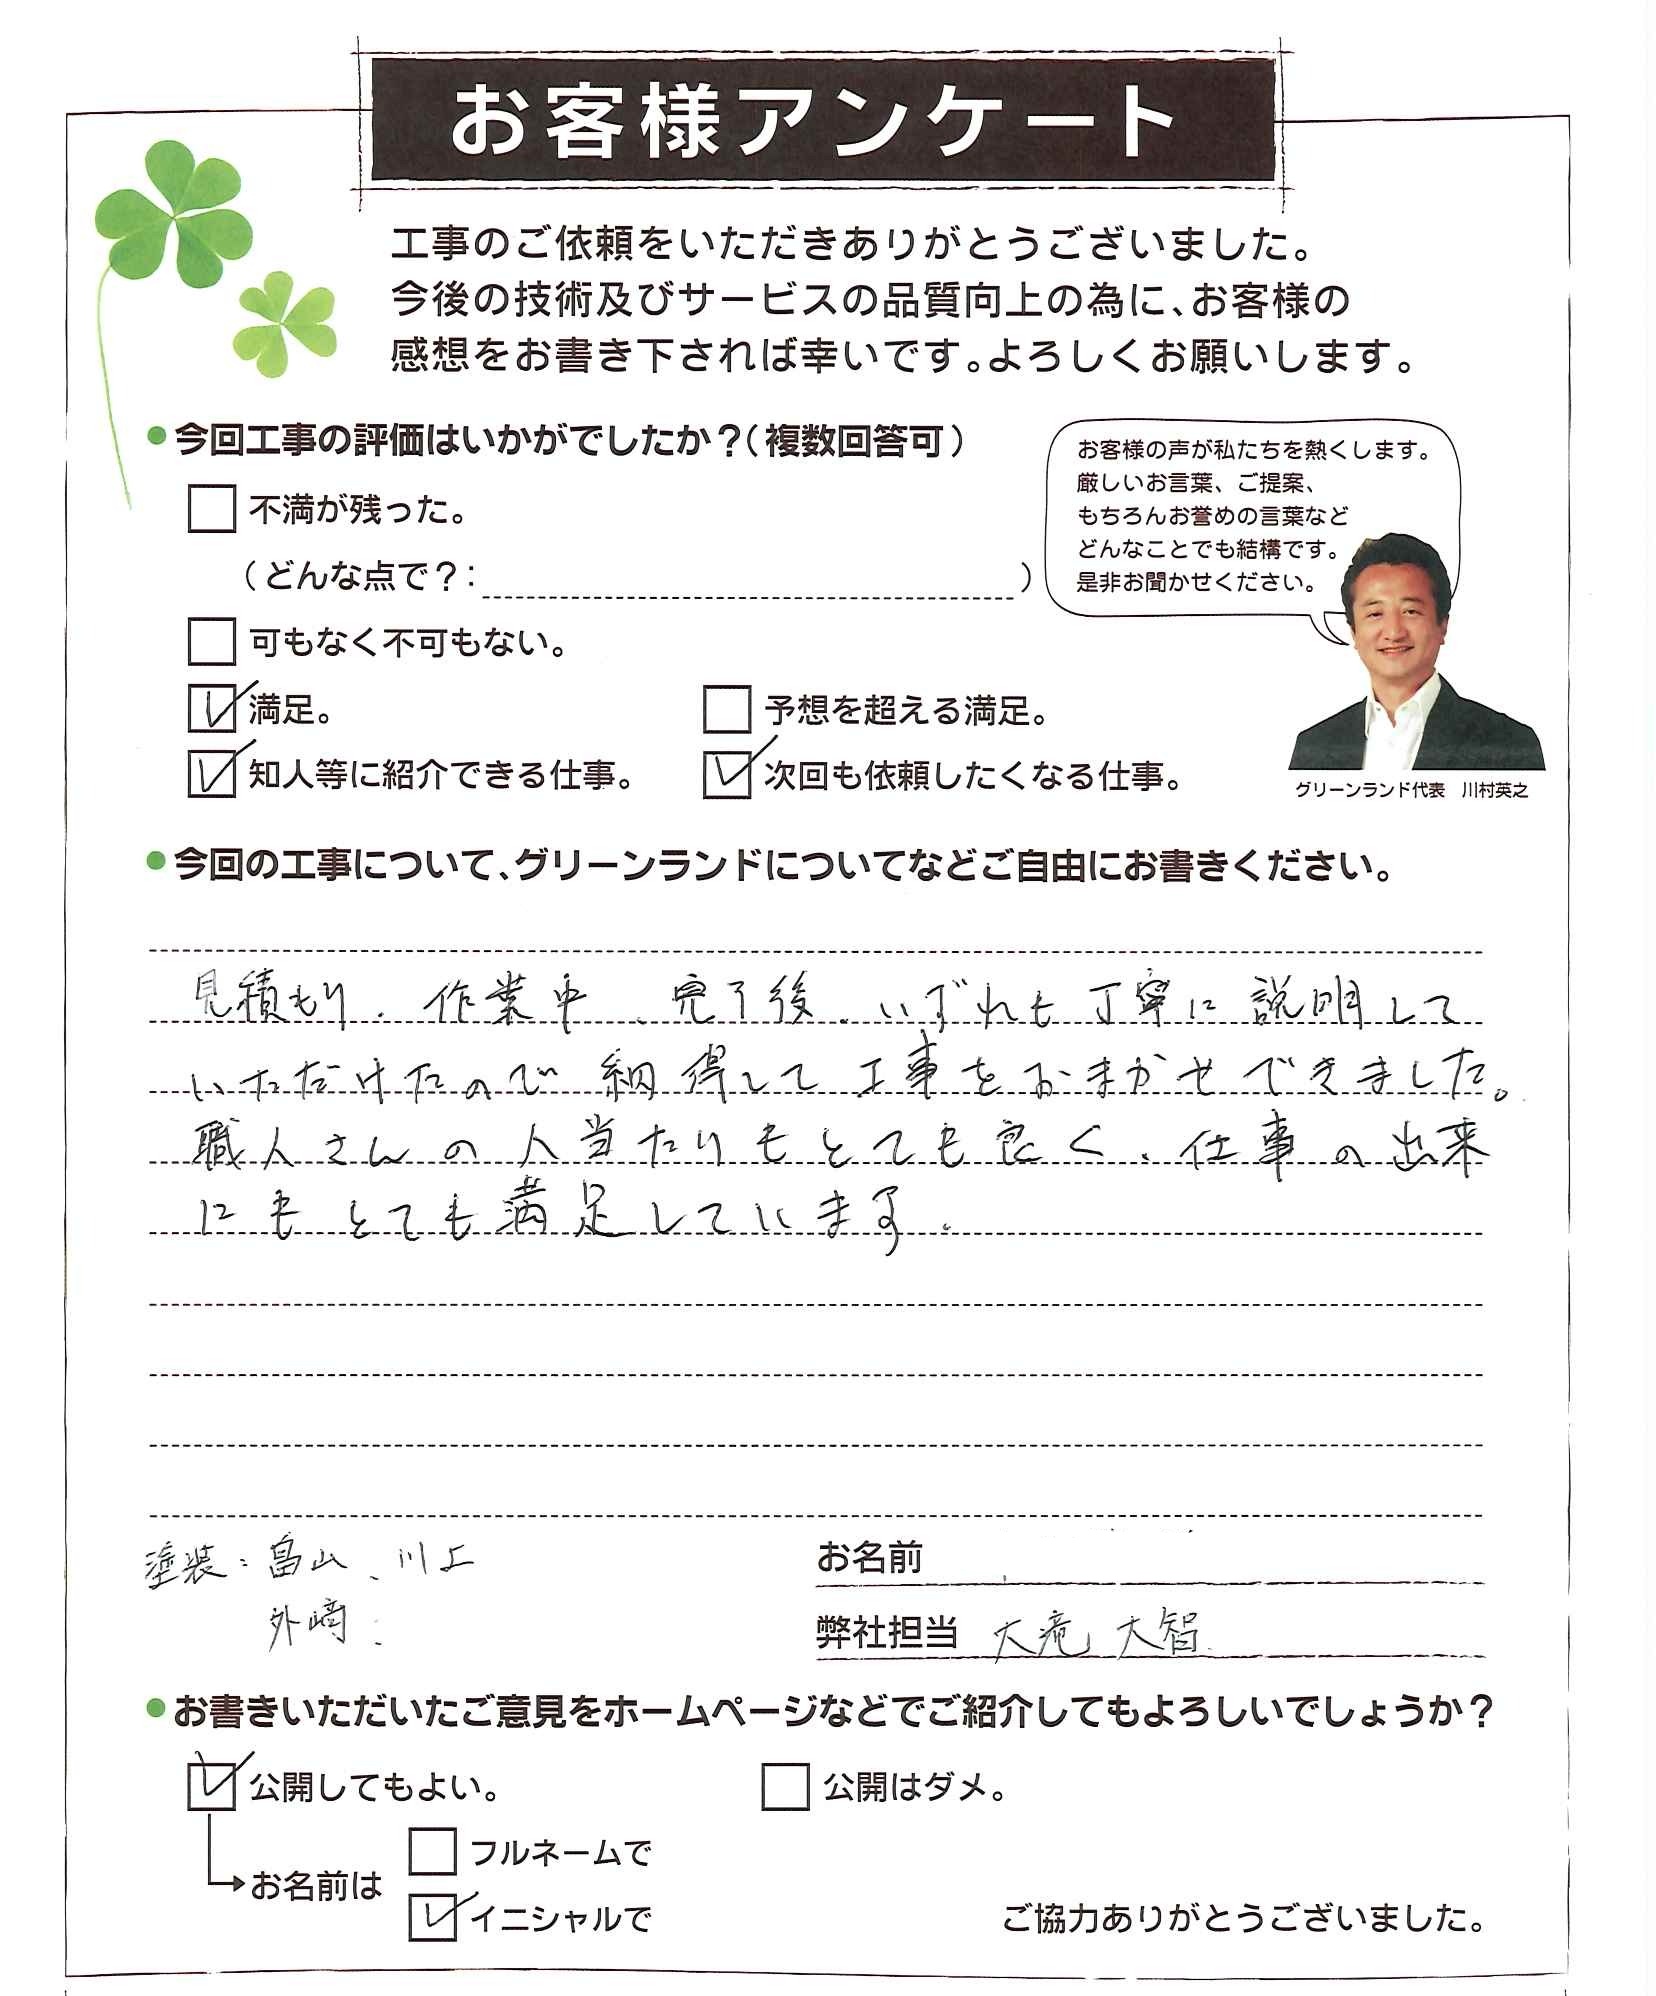 お客様アンケート
工事のご依頼をいただきありがとうございました。
今後の技術及びサービスの品質向上の為に、お客様の
感想をお書き下されば幸いです。よろしくお願いします。
●今回工事の評価はいかがでしたか？（複数回答可）
不満が残った。
（どんな点で？： ）
可もなく不可もない。
満足。
予想を超える満足。
知人等に紹介できる仕事。
次回も依頼したくなる仕事。
お客様の声が私たちを熱くします。
厳しいお言葉、ご提案、
もちろんお誉めの言葉など
どんなことでも結構です。
是非お聞かせください。
グリーンランド代表　川村英之
●今回の工事について、グリーンランドについてなどご自由にお書きください。
見積もり、作業中、完了後、いずれも丁寧に説明して
いただけたので納得して工事をおまかせできました。
職人さんの人当たりもとても良く、仕事の出来
にもとても満足しています。
塗装：畠山、川上
外﨑：
お名前
弊社担当 大滝 大智
●お書きいただいたご意見をホームページなどでご紹介してもよろしいでしょうか？
公開してもよい。
公開はダメ。
お名前は
フルネームで
イニシャルで
ご協力ありがとうございました。